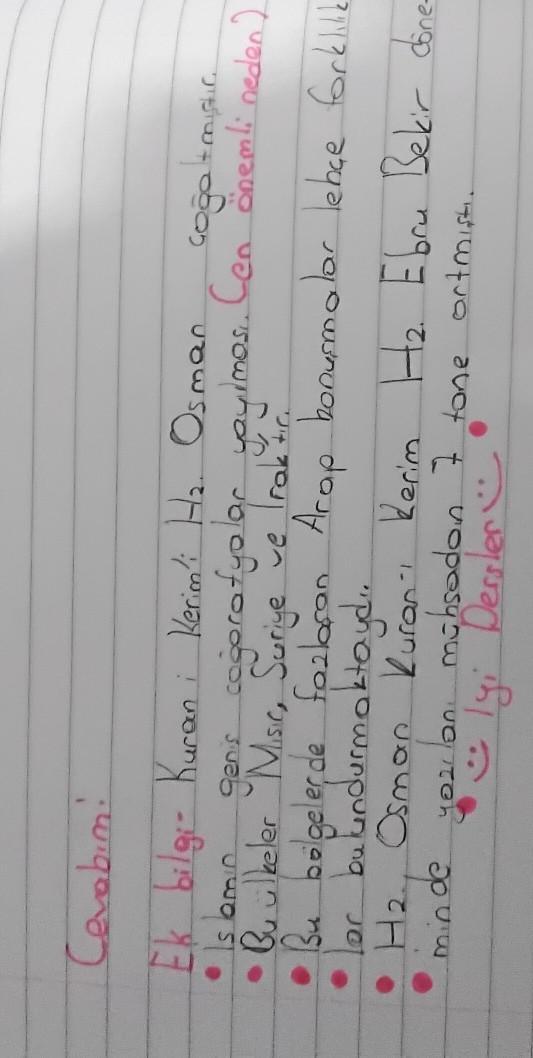 Cevabım:
Ek bilgi- Kuranı Kerim'i Hz. Osman çoğaltmıştır.
İslamın geniş coğorafyalar yayılması. (en önemli neden)
Bu ülkeler Mısır, Suriye ve Iraktır.
Bu bölgelerde fazladan Arap konuşmalar lehçe farklılık
lar bulundurmaktaydı.
Hz. Osman Kuran-ı Kerim Hz. Ebru Bekir döne-
minde yazılanı mühsadan 7 tane artmıştı.
☺ İyi Dersler ☺